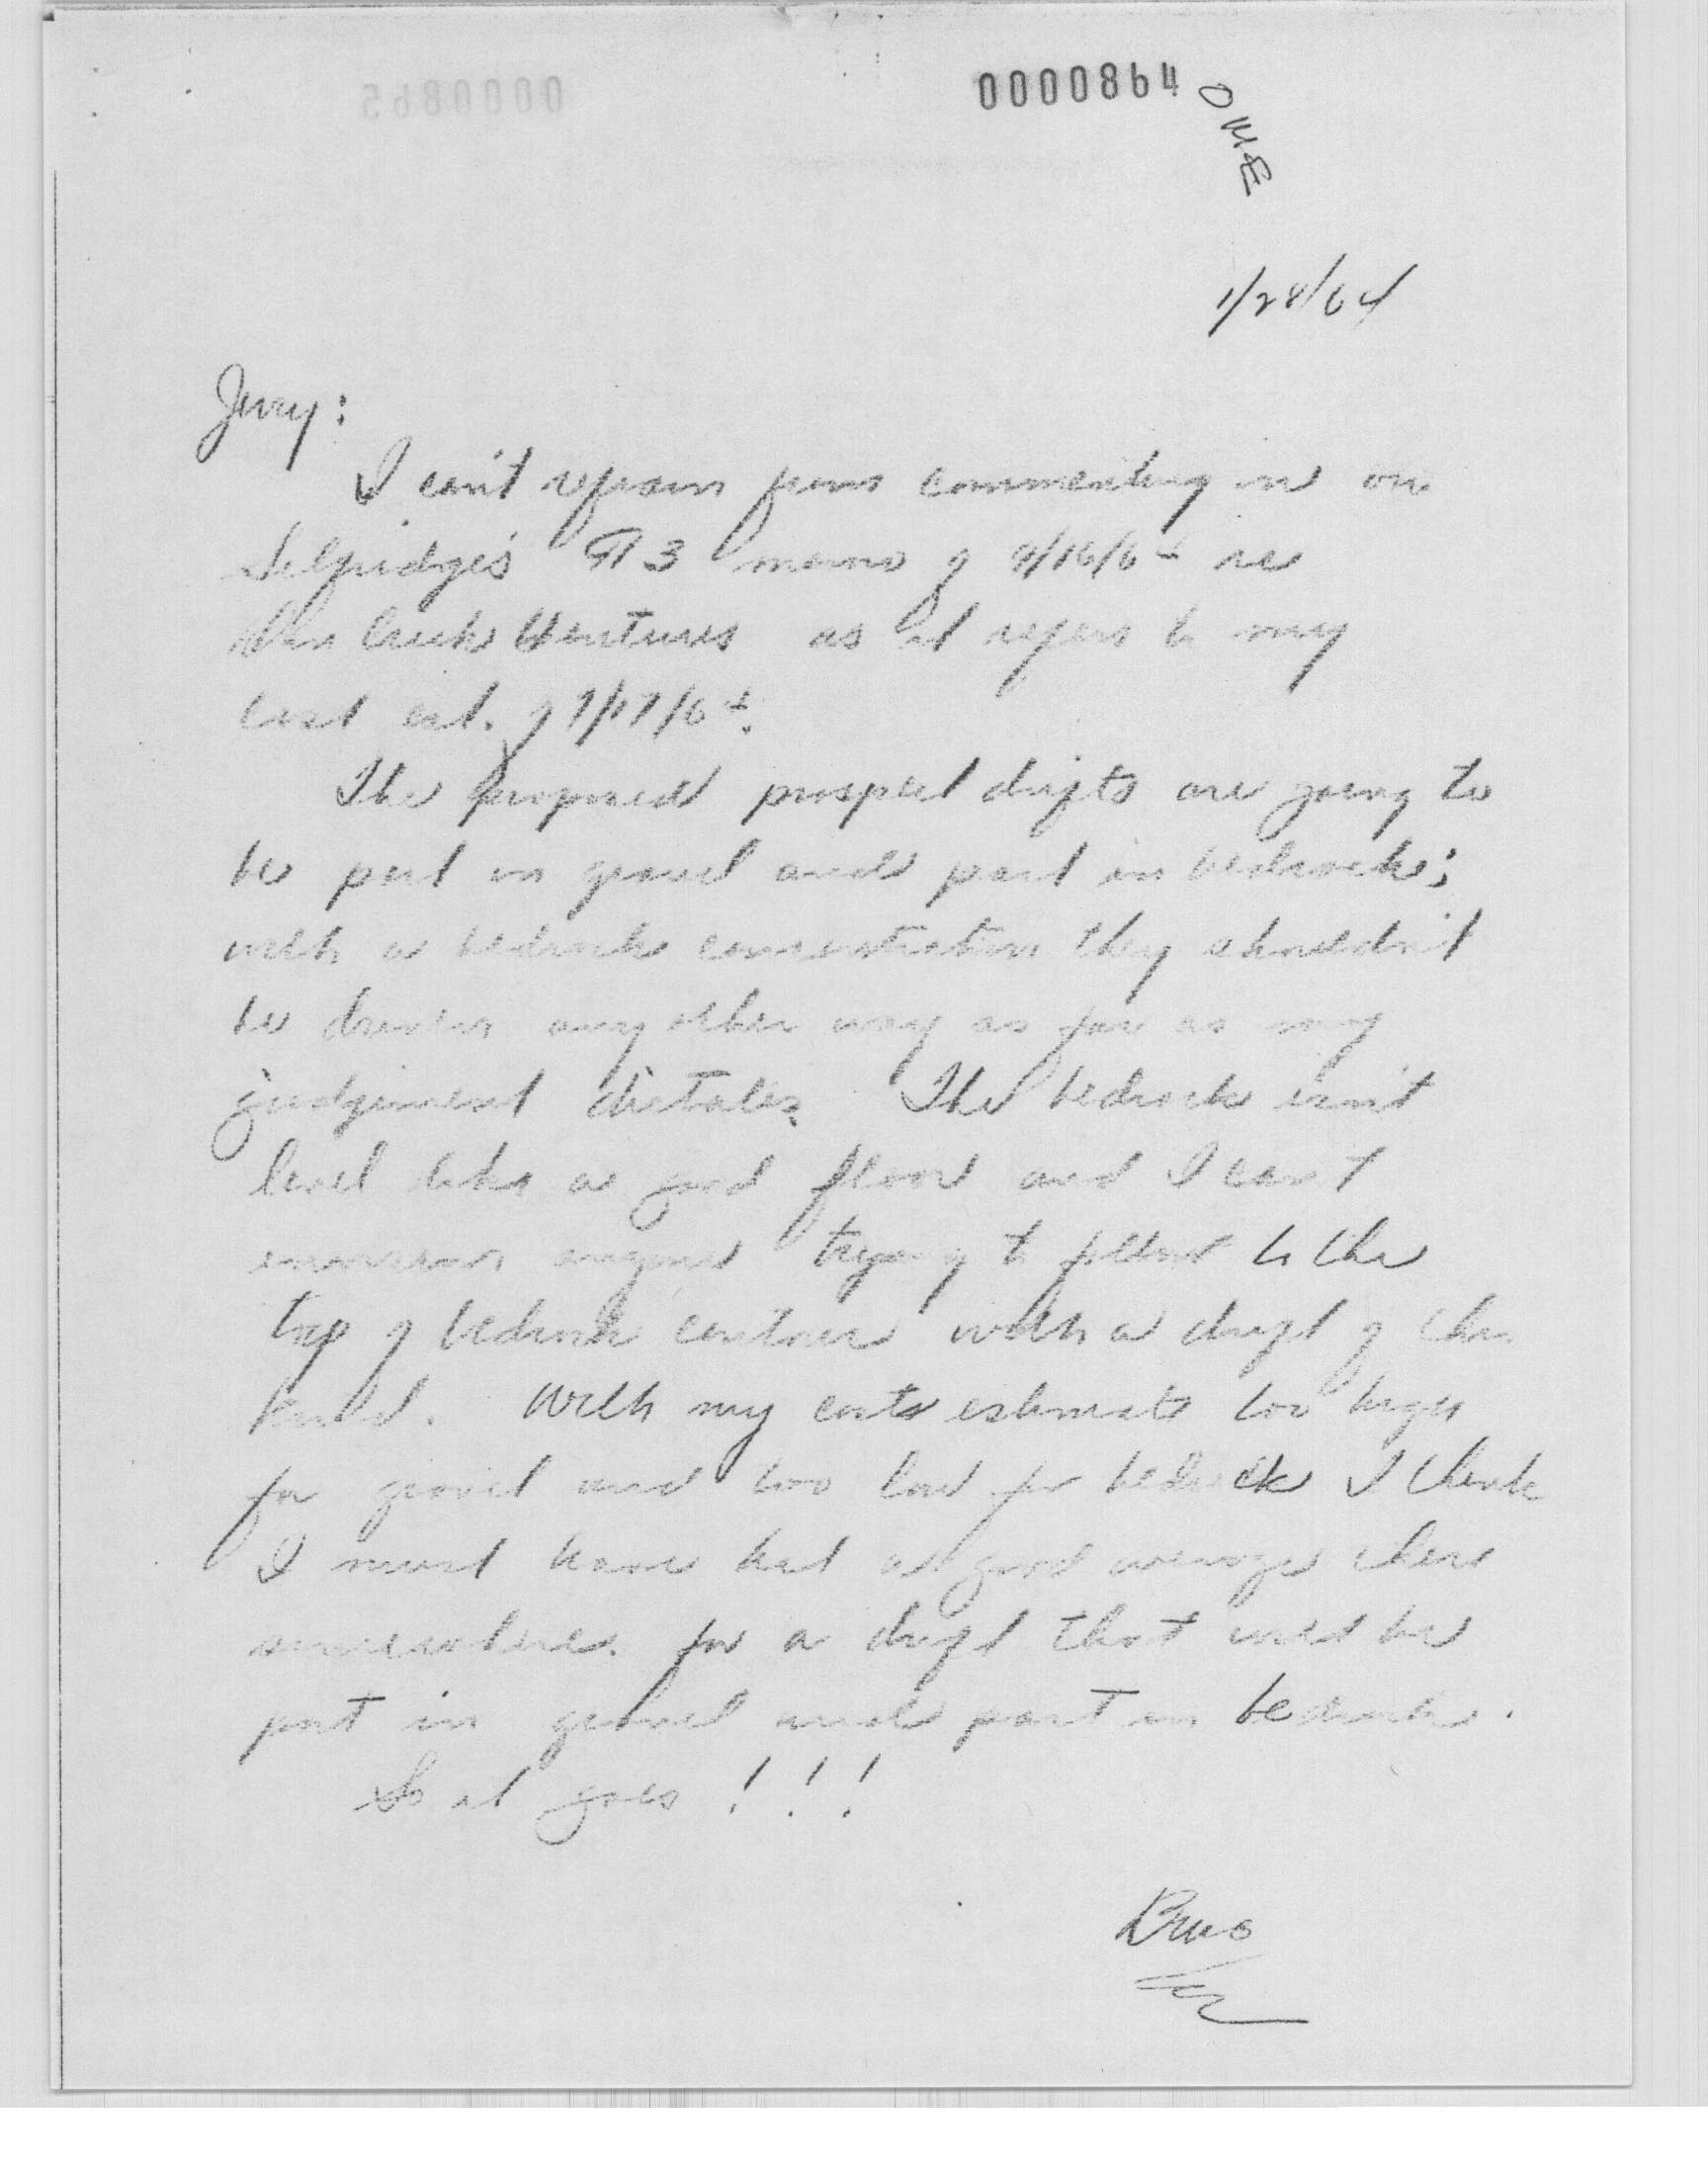 0000864
OME
1/28/64
Jerry:
I can't refrain from commenting on
Selfridge's ¶ 3 memo of 9/16/64 re
Creek Ventures as it refers to my
cost est. of 7/17/64.
The proposed prospect drifts are going to
be part in gravel and part in bedrock;
with a bedrock concentration they shouldn't
be driven any other way as far as my
judgement dictates. The bedrock isn't
level like a good floor and I can't
trying to follow to the
top of bedrock contour with a drift of this
kind. With my costs estimate too high
for gravel and too low for bedrock I think
I must have had a good average there
somewhere for a drift that would be
part in gravel and part in bedrock.
So it goes !!!